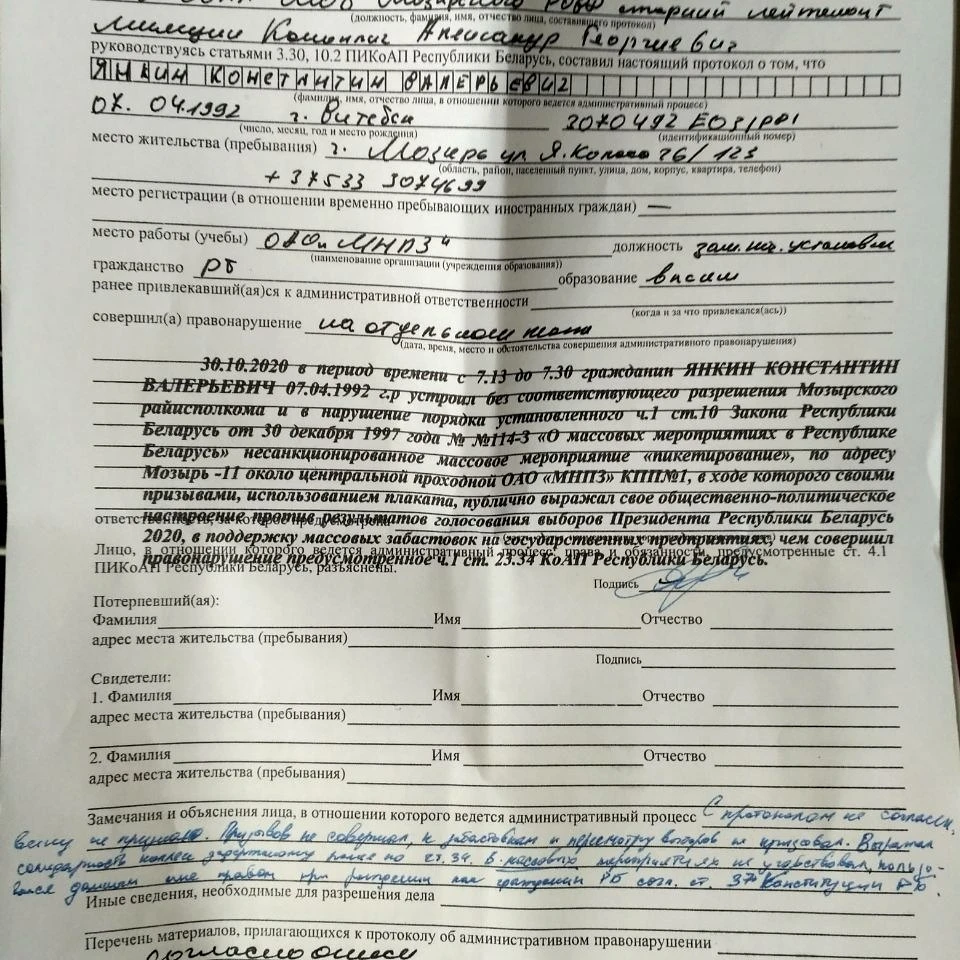 старший лейтенант
(должность, фамилия, имя, отчество лица, составившего протокол)
милиции Александр Георгиевич
руководствуясь статьями 3.30, 10.2 ПИКоАП Республики Беларусь, составил настоящий протокол о том, что
ЯНКИН КОНСТАНТИН ВАЛЕРЬЕВИЧ
(фамилия, имя, отчество лица, в отношении которого ведется административный процесс)
07.04.1992 г. Витебск
(число, месяц, год и место рождения) (идентификационный номер)
место жительства (пребывания) г. Мозырь ул Я. Коласа 26/123
(область, район, населенный пункт, улица, дом, корпус, квартира, телефон)
+37533 3074699
место регистрации (в отношении временно пребывающих иностранных граждан) —
место работы (учебы) ОАО "МНПЗ" должность зам. нач. установки
(наименование организации (учреждения образования))
гражданство РБ образование высш
ранее привлекавший(ая)ся к административной ответственности
(когда и за что привлекался(ась))
совершил(а) правонарушение на отдельном
(дата, время, место и обстоятельства совершения административного правонарушения)
30.10.2020 в период времени с 7.13 до 7.30 гражданин ЯНКИН КОНСТАНТИН
ВАЛЕРЬЕВИЧ 07.04.1992 г.р устроил без соответствующего разрешения Мозырского
райисполкома и в нарушение порядка установленного ч.1 ст.10 Закона Республики
Беларусь от 30 декабря 1997 года № №114-З «О массовых мероприятиях в Республике
Беларусь» несанкционированное массовое мероприятие «пикетирование», по адресу
Мозырь -11 около центральной проходной ОАО «МНПЗ» КПП№1, в ходе которого своими
призывами, использованием плаката, публично выражал свое общественно-политическое
настроение против результатов голосования выборов Президента Республики Беларусь
ответственность, за которое предусмотрена
2020, в поддержку массовых забастовок на государственных предприятиях, чем совершил
Лицо, в отношении которого ведется административный процесс, права и обязанности, предусмотренные ст. 4.1
правонарушение предусмотренное ч.1 ст. 23.34 КоАП Республики Беларусь.
ПИКоАП Республики Беларусь, разъяснены.
Подпись
Потерпевший(ая):
Фамилия Имя Отчество
адрес места жительства (пребывания)
Подпись
Свидетели:
1. Фамилия Имя Отчество
адрес места жительства (пребывания)
2. Фамилия Имя Отчество
адрес места жительства (пребывания)
Замечания и объяснения лица, в отношении которого ведется административный процесс С протоколом не согласен,
вину не признаю. Призывов не совершал, к забастовкам и пересмотру выборов не призывал. Выражал
солидарность коллеге по ст. 34. В массовых мероприятиях не участвовал, пользо-
вался данным мне правом при рождении как гражданин РБ согл. ст. 37 Конституции РБ.
Иные сведения, необходимые для разрешения дела
Перечень материалов, прилагающихся к протоколу об административном правонарушении
согласно описи